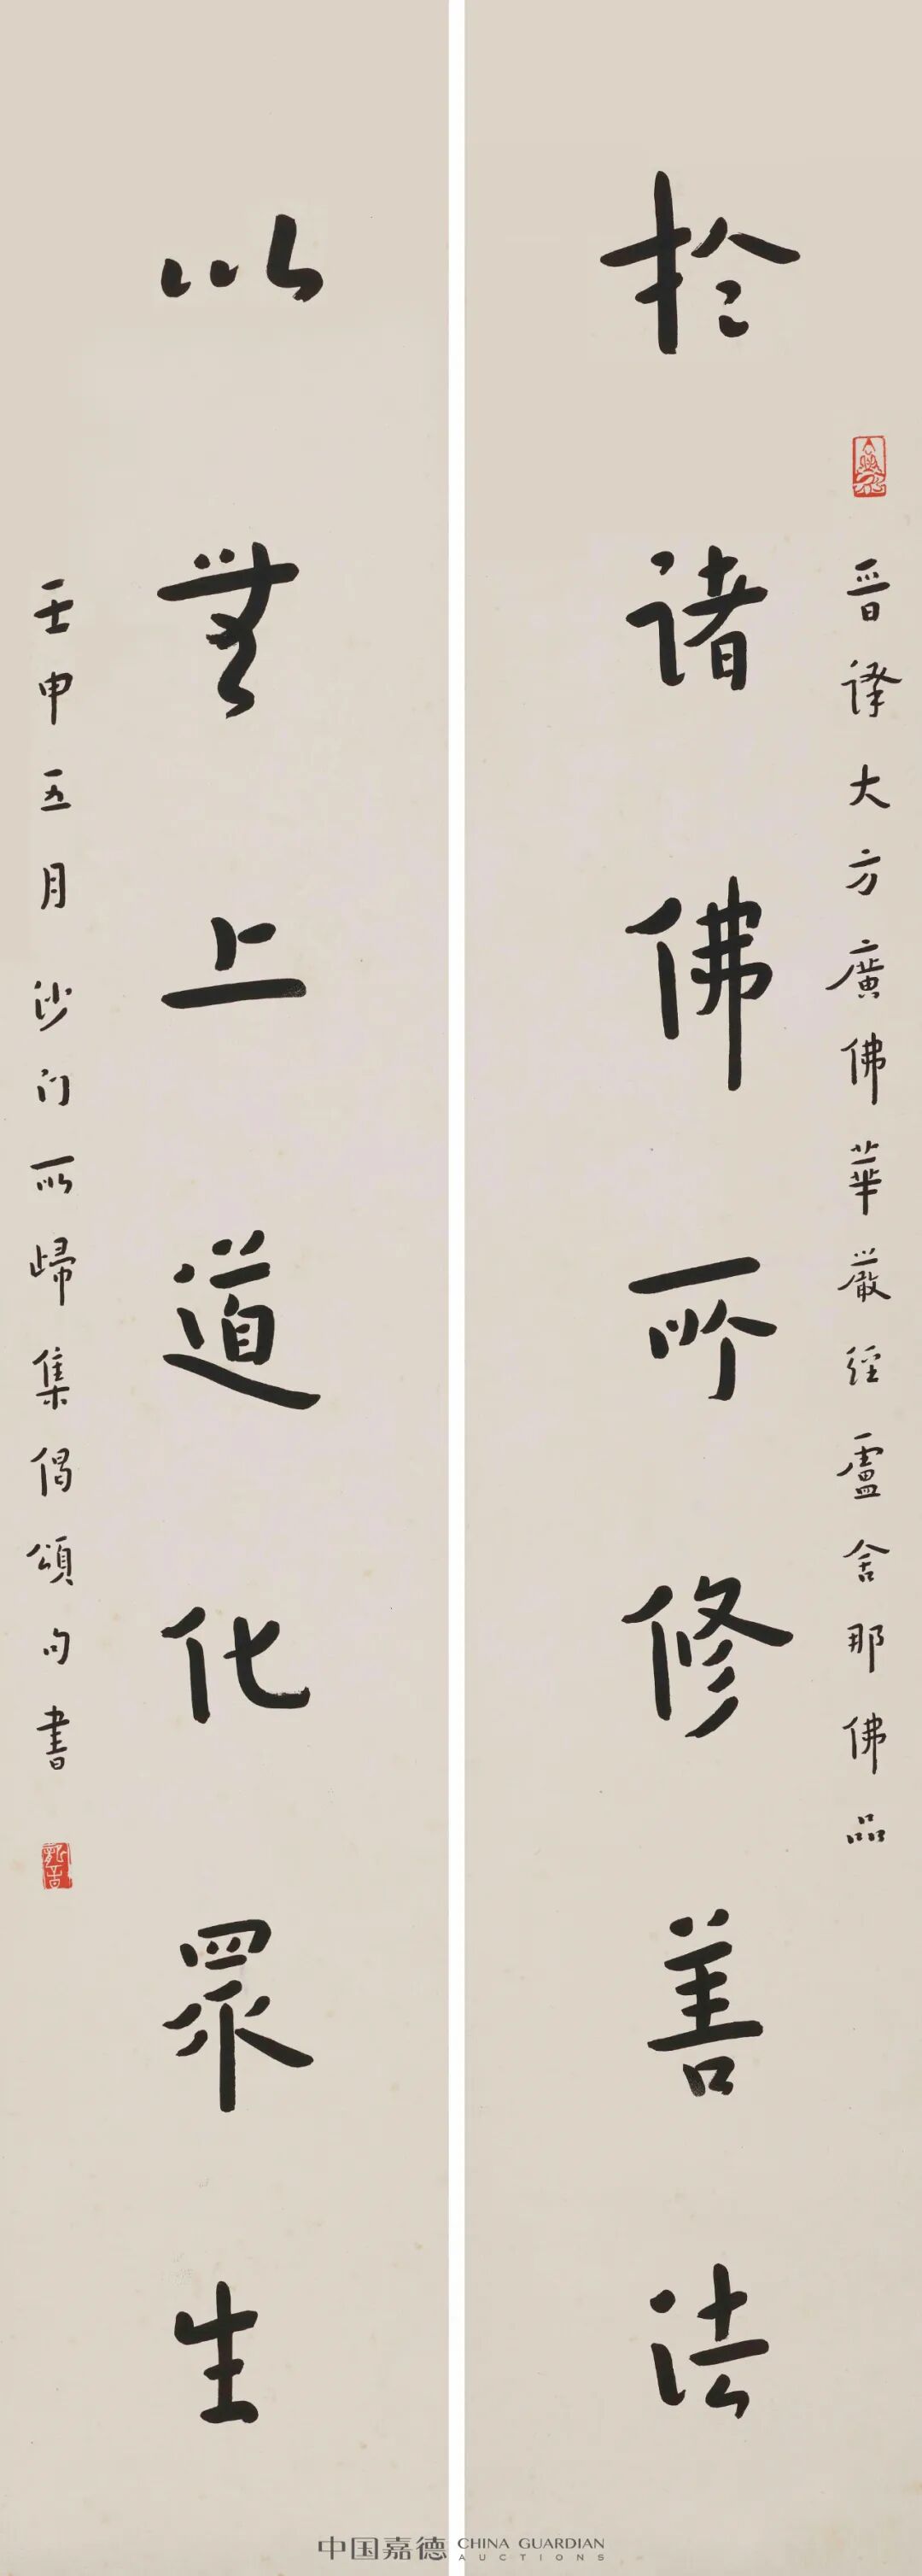 晉譯大方廣佛華嚴經盧舍那佛品
於諸佛所修善法
以無上道化眾生
壬申五月沙门所歸集偈頌句書
中国嘉德 CHINA GUARDIAN
AUCTIONS